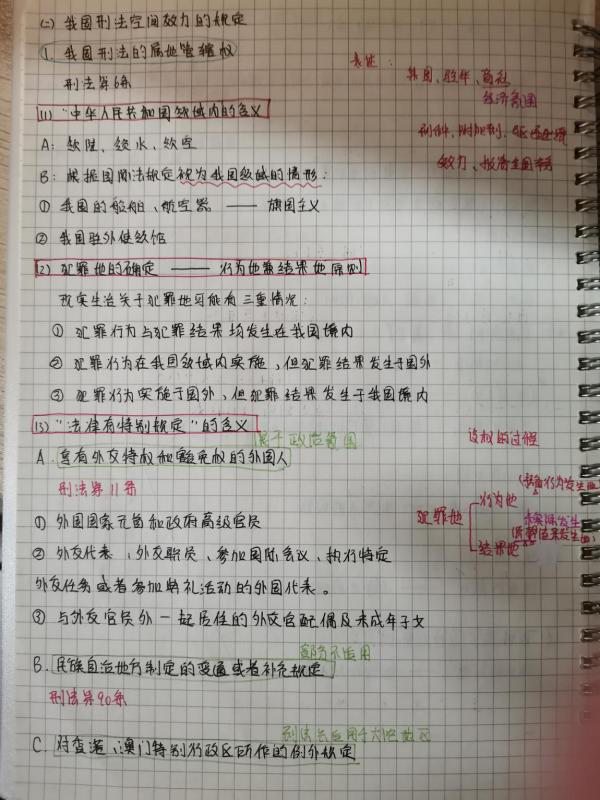 (二) 我国刑法空间效力的规定
1. 我国刑法的属地管辖权
刑法第6条
(1) "中华人民共和国领域内的含义
A: 领陆、领水、领空
B: 根据国际法规定视为我国领域的情形:
① 我国的船舶、航空器 —— 旗国主义
② 我国驻外使领馆
(2) 犯罪地的确定 —— 行为地兼结果地原则
现实生活关于犯罪地可能有三重情况:
① 犯罪行为与犯罪结果均发生在我国境内
② 犯罪行为在我国领域内实施,但犯罪结果发生于国外
③ 犯罪行为实施于国外,但犯罪结果发生于我国境内
(3) "法律有特别规定"的含义
属于政治范围
A. 享有外交特权和豁免权的外国人
刑法第11条
① 外国国家元首和政府高级官员
② 外交代表、外交职员、参加国际会议、执行特定
外交任务或者参加典礼活动的外国代表。
③ 与外交官员外一起居住的外交官配偶及未成年子女
部分不适用
B. 民族自治地方制定的变通或者补充规定
刑法第90条
刑法只适用于大陆地区
C. 对香港、澳门特别行政区所作的例外规定
韩国、驻华、商社
经济范围
附加刑、驱逐出境
效力、
议权的过程
犯罪地
行为地
行为发生地
未实际发生
结果地
结果发生地